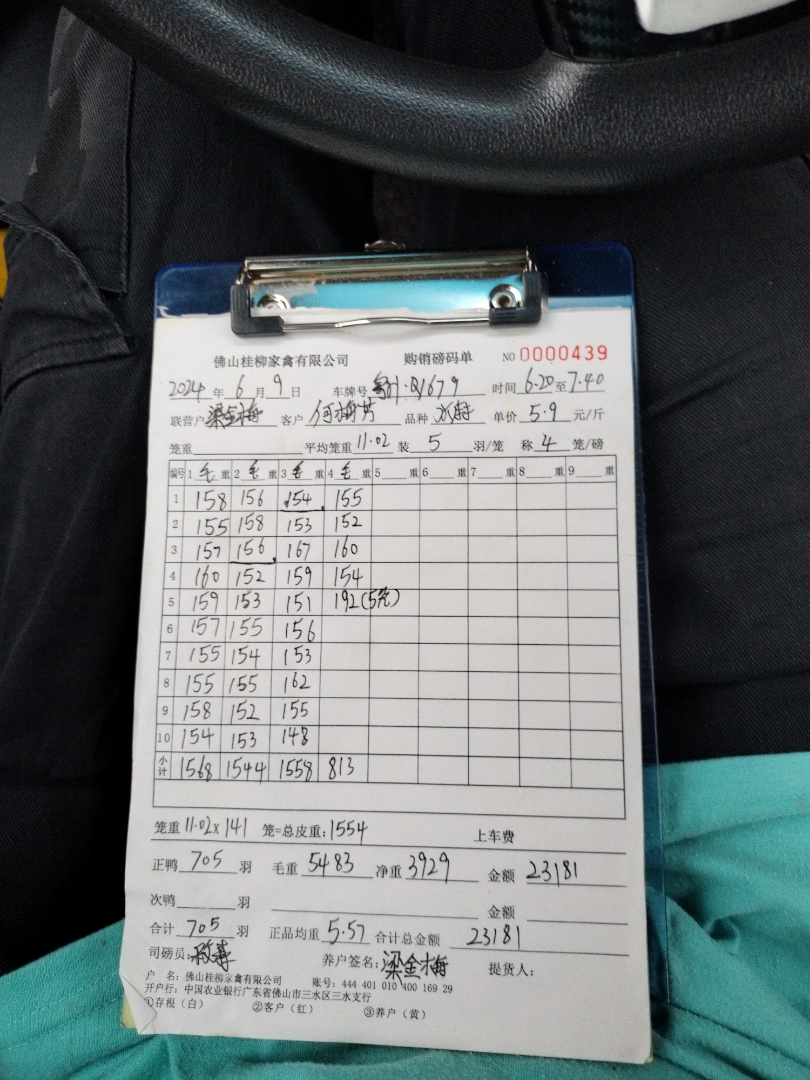 佛山桂柳家禽有限公司 购销磅码单 NO 0000439
2024 年 6 月 9 日 车牌号 Q1679 时间 6.20 至 7.40
联营户 梁金梅 客户 何梅芳 品种 单价 5.9 元/斤
笼重 平均笼重 11.02 装 5 羽/笼 称 4 笼/磅
编号 1 毛 重 2 毛 重 3 毛 重 4 毛 重 5 重 6 重 7 重 8 重 9 重
1 158 156 154 155
2 155 158 153 152
3 157 156 167 160
4 160 152 159 154
5 159 153 151 192(5笼)
6 157 155 156
7 155 154 153
8 155 155 162
9 158 152 155
10 154 153 148
小计 1568 1544 1558 813
笼重 11.02 x 141 笼=总皮重: 1554 上车费
正鸭 705 羽 毛重 5483 净重 3929 金额 23181
次鸭 羽 金额
合计 705 羽 正品均重 5.57 合计总金额 23181
司磅员: 养户签名: 梁金梅 提货人:
户 名: 佛山桂柳家禽有限公司 账号: 444 401 010 400 169 29
开户行: 中国农业银行广东省佛山市三水区三水支行
①存根(白) ②客户(红) ③养户(黄)